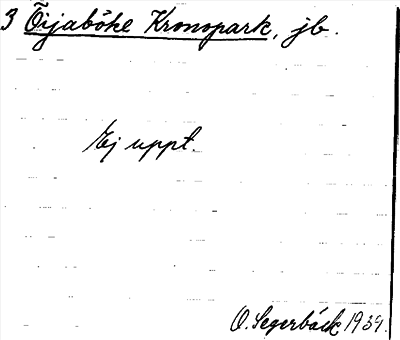 3 Öijaböke Kronopark, jb.
Ej uppt.
O. Segerbäck 1934.